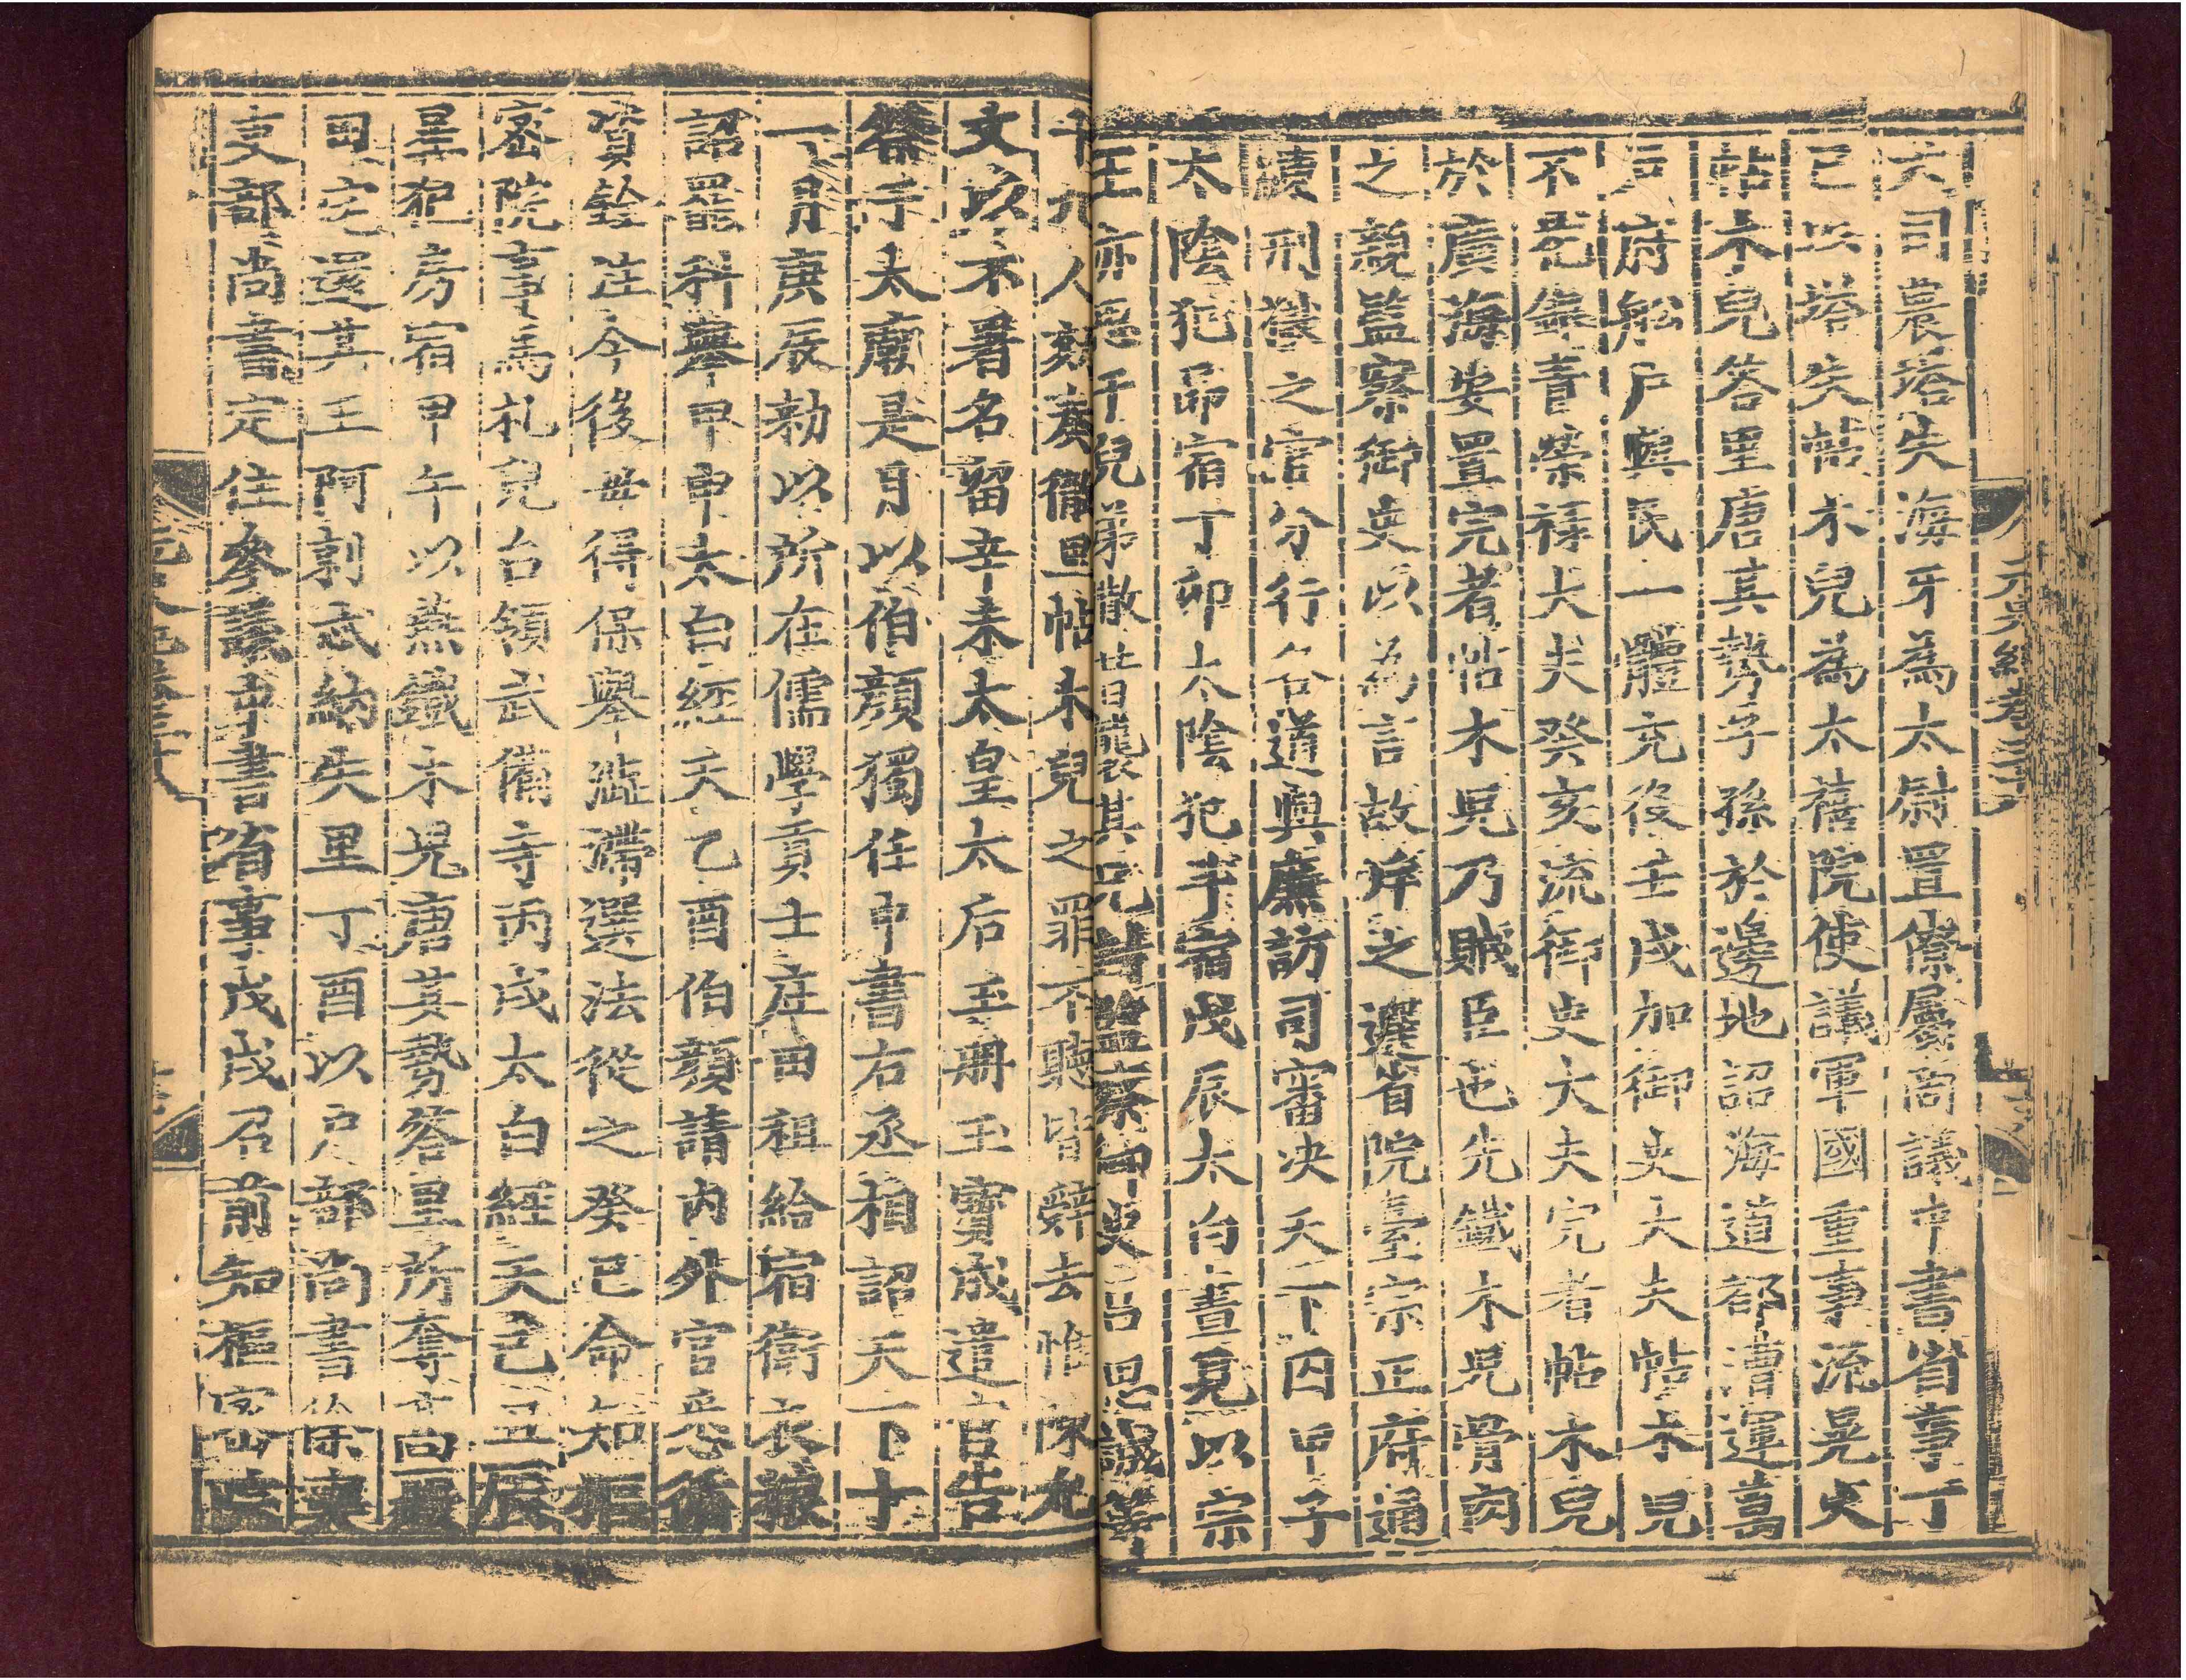 大司農塔失海牙為太尉置僚屬商議中書省事丁
巳以塔失帖木兒為太禧院使議軍國重事流晃火
帖木兒答里唐其勢子孫於邊地詔海道都漕運萬
戶府船戶與民一體充役壬戌加御史大夫帖木兒
不花銀青榮祿大夫癸亥流御史大夫完者帖木兒
於廣海安置完者帖木兒乃賊臣也先鐵木兒骨肉
之親監察御史以為言故斥之遣省院臺宗正府通
瀆刑獄之官分行各道與廉訪司審決天下囚甲子
太陰犯昴宿丁卯太陰犯斗宿戊辰太白晝見以宗
王亦思干兒弟撒昔襲其兄封監察御史呂思誠等
十九人劾奏徹里帖木兒之罪不聽皆辭去惟陳允
文以不署名留辛未太皇太后玉冊玉寶成遣官告
祭于太廟是月以伯顏獨任中書右丞相詔天下十
一月庚辰勑以所在儒學貢士庄田租給宿衛衣糧
詔罷科舉甲申太白經天乙酉伯顏請內外官悉循
資銓注今後毋得保舉澁滯選法從之癸巳命知樞
密院事馬札兒台領武備寺丙戌太白經天己丑辰
星犯房宿甲午以燕鐵木兒唐其勢答里所奪高麗
田宅還其王阿剌忒納失里丁酉以戶部尚書徐奭
吏部尚書定住參議中書省事戊戌召前知樞密院
元史紀卷三十八